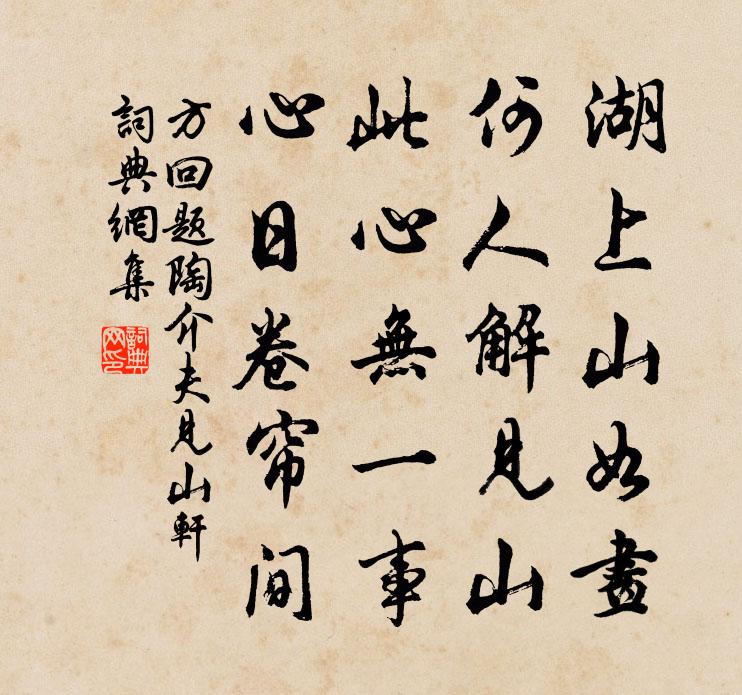 湖上山如畫
何人解見山
此心無一事
心日卷帘间
方回题陶介夫見山軒
詞典網集
詞典網印